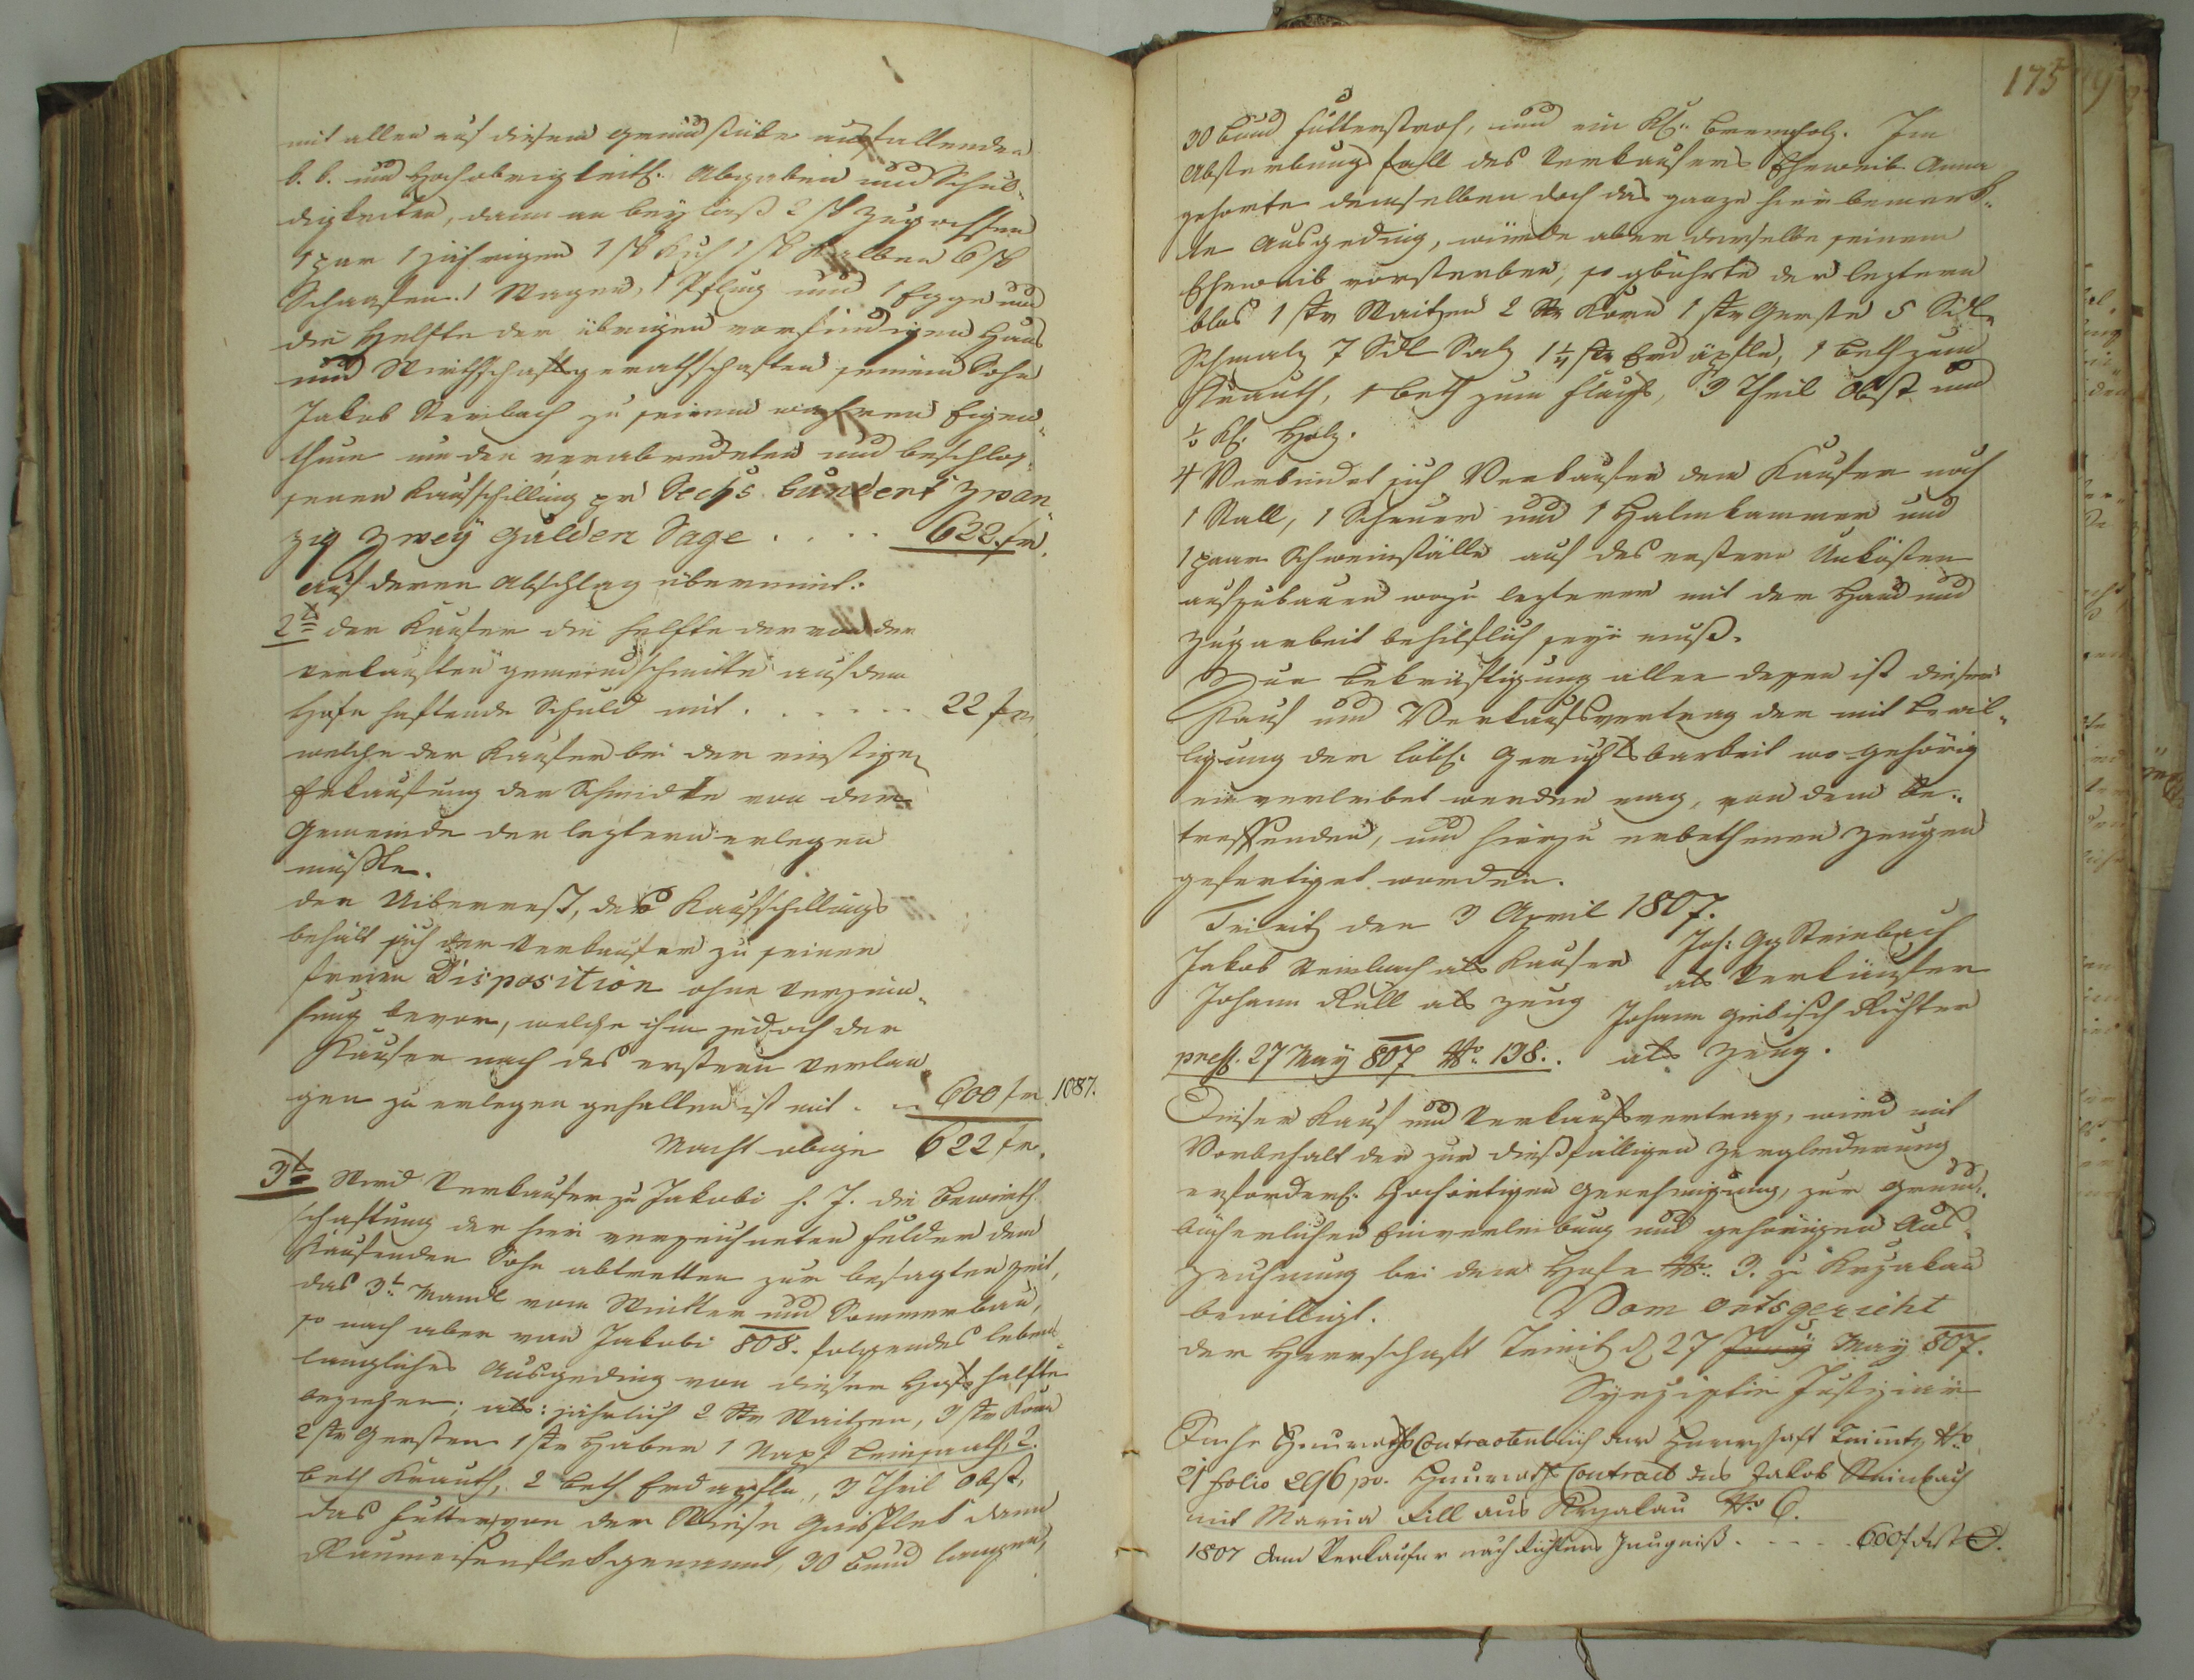 mit allen auf diesem Grundstüke ausfallenden
k. k. und Hochobrigkeitl. Abgaben und Schul-
digkeiten, dann an beylaß 2 st Zugochsen
1 par 1 jährigen 1 st Kuh 1 st Kalben 6 st
Schaafen. 1 Wagen, 1 Pflug und 1 Egge und
die Helfte der übrigen vorfindigen Haus
und Wirthschaftgerathschaften seinem Sohn
Jakob Steinbach zu seinem wahren Eigen-
thum um den verabredeten und beschlos-
senen Kaufschilling pr Sechs hundert zwan-
zig zwey Gulden Sage . . . . 622 fr.
Auf deren Abschlag übernimt:
2t der Kaufer die Helfte der von der
verkauften gemeindschmitte auf dem
Hofe haftende Schuld mit . . . . . . 22 fr
welche der Kaufer bei der einstigen
Erkaufung der Schmidte von der
Gemeinde der leztern erlegen
müßte.
den Uiberrest, des Kaufschillings
behält sich der Verkaufer zu seiner
freien Disposition ohne Verzin-
sung bevor, welche ihm jedoch der
Kaufer nach des erstern Verlan-
gen zu erlegen gehalten ist mit . . 600 fr. 1087.
Macht obige 622 fr.
3t Wird Verkaufer zu Jakobi h. J. die Bewirth-
schaftung der hier verzeichneten Felder dem
Kaufenden Sohn abtretten zur besagten Zeit,
das 3t Mandl vom Winter und Sommerbau,
so nach aber von Jakobi 808. folgendes lebens-
langliches Ausgeding von dieser Hofs halfte
beziehen; als: jährlich 2 Str Waitzen, 3 str Korn
2 str Gersten 1 str Haber 1 Napf Leinsaath, 2.
beth Krauth, 2 beth Erdapfln, 3 Theil Obst,
das Futter von der Wiese dann
genannt, 30 bund langes,
175
30 bund Futterstroh, und ein Kl. brennholz. Im
Absterbungsfall des Verkaufers Eheweib Anna
gehorte demselben doch das ganze hier bemerk-
te Ausgeding, würde aber derselbe seinem
Eheweib vorsterben, so gbührte der leztern
blos 1 str Waitzen 2 str Korn 1 str Gerste 5 Sdl
Schmalz 7 Sdl Salz 1 1/4 str Erdäpfln, 1 beth zum
Krauth, 1 beth zum Flachs, 3 Theil Obst und
1/2 Kl. Holz.
4 Verbindet sich Verkaufer dem Kaufer noch
1 Stall, 1 Scheuer und 1 Halmkammer und
1 paar Schweinställe auf des erstern Unkösten
aufzubauen wozu lezterer mit der Hand und
Zugarbeit behilflich seyn muß.
Zur bekräftigung aller dessen ist dieser
Kauf und Verkaufsvertrag der mit bewil-
ligung der löbl. Gerichtsbarkeit wo gehörig
einverleibet werden mag, von dem be-
treffenden, und hierzu erbethenen Zeugen
gefertiget worden.
Teinitz den 3 April 1807.
Jakob Steinbach als Kaufer Joh: Grg Steinbach
als Verkäufer
Johann Rull als Zeug Johann Richter
als Zeug.
pres. 27 May 807 No. 198.
Dieser Kauf und Verkaufsvertrag, wird mit
Vorbehalt der zur dießfälligen Zergliederung
erforderl. Hochörtigen Genehmigung, zur Grund-
bücherlichen Einverleibung und gehörigen Aus-
zeichnung bei dem Hofe No. 3. zu Krzakau
bewilligt. Vom ortsgericht
der Herrschaft Teinitz d 27 Juny May 807.
Justiziär
Siehe Heuraths Contractenbuch der Herrschaft Teinitz No
21 folio 296 pr. Heuraths Contract des Jakob Steinbach
mit Maria Fill aus Krzakau No 6.
1807 dem Verkaufer nach Richters Zeugniß . . . . . 600 f